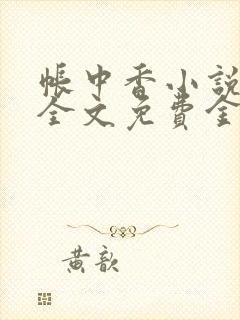 帳中香小說
全文免費全
黃歆